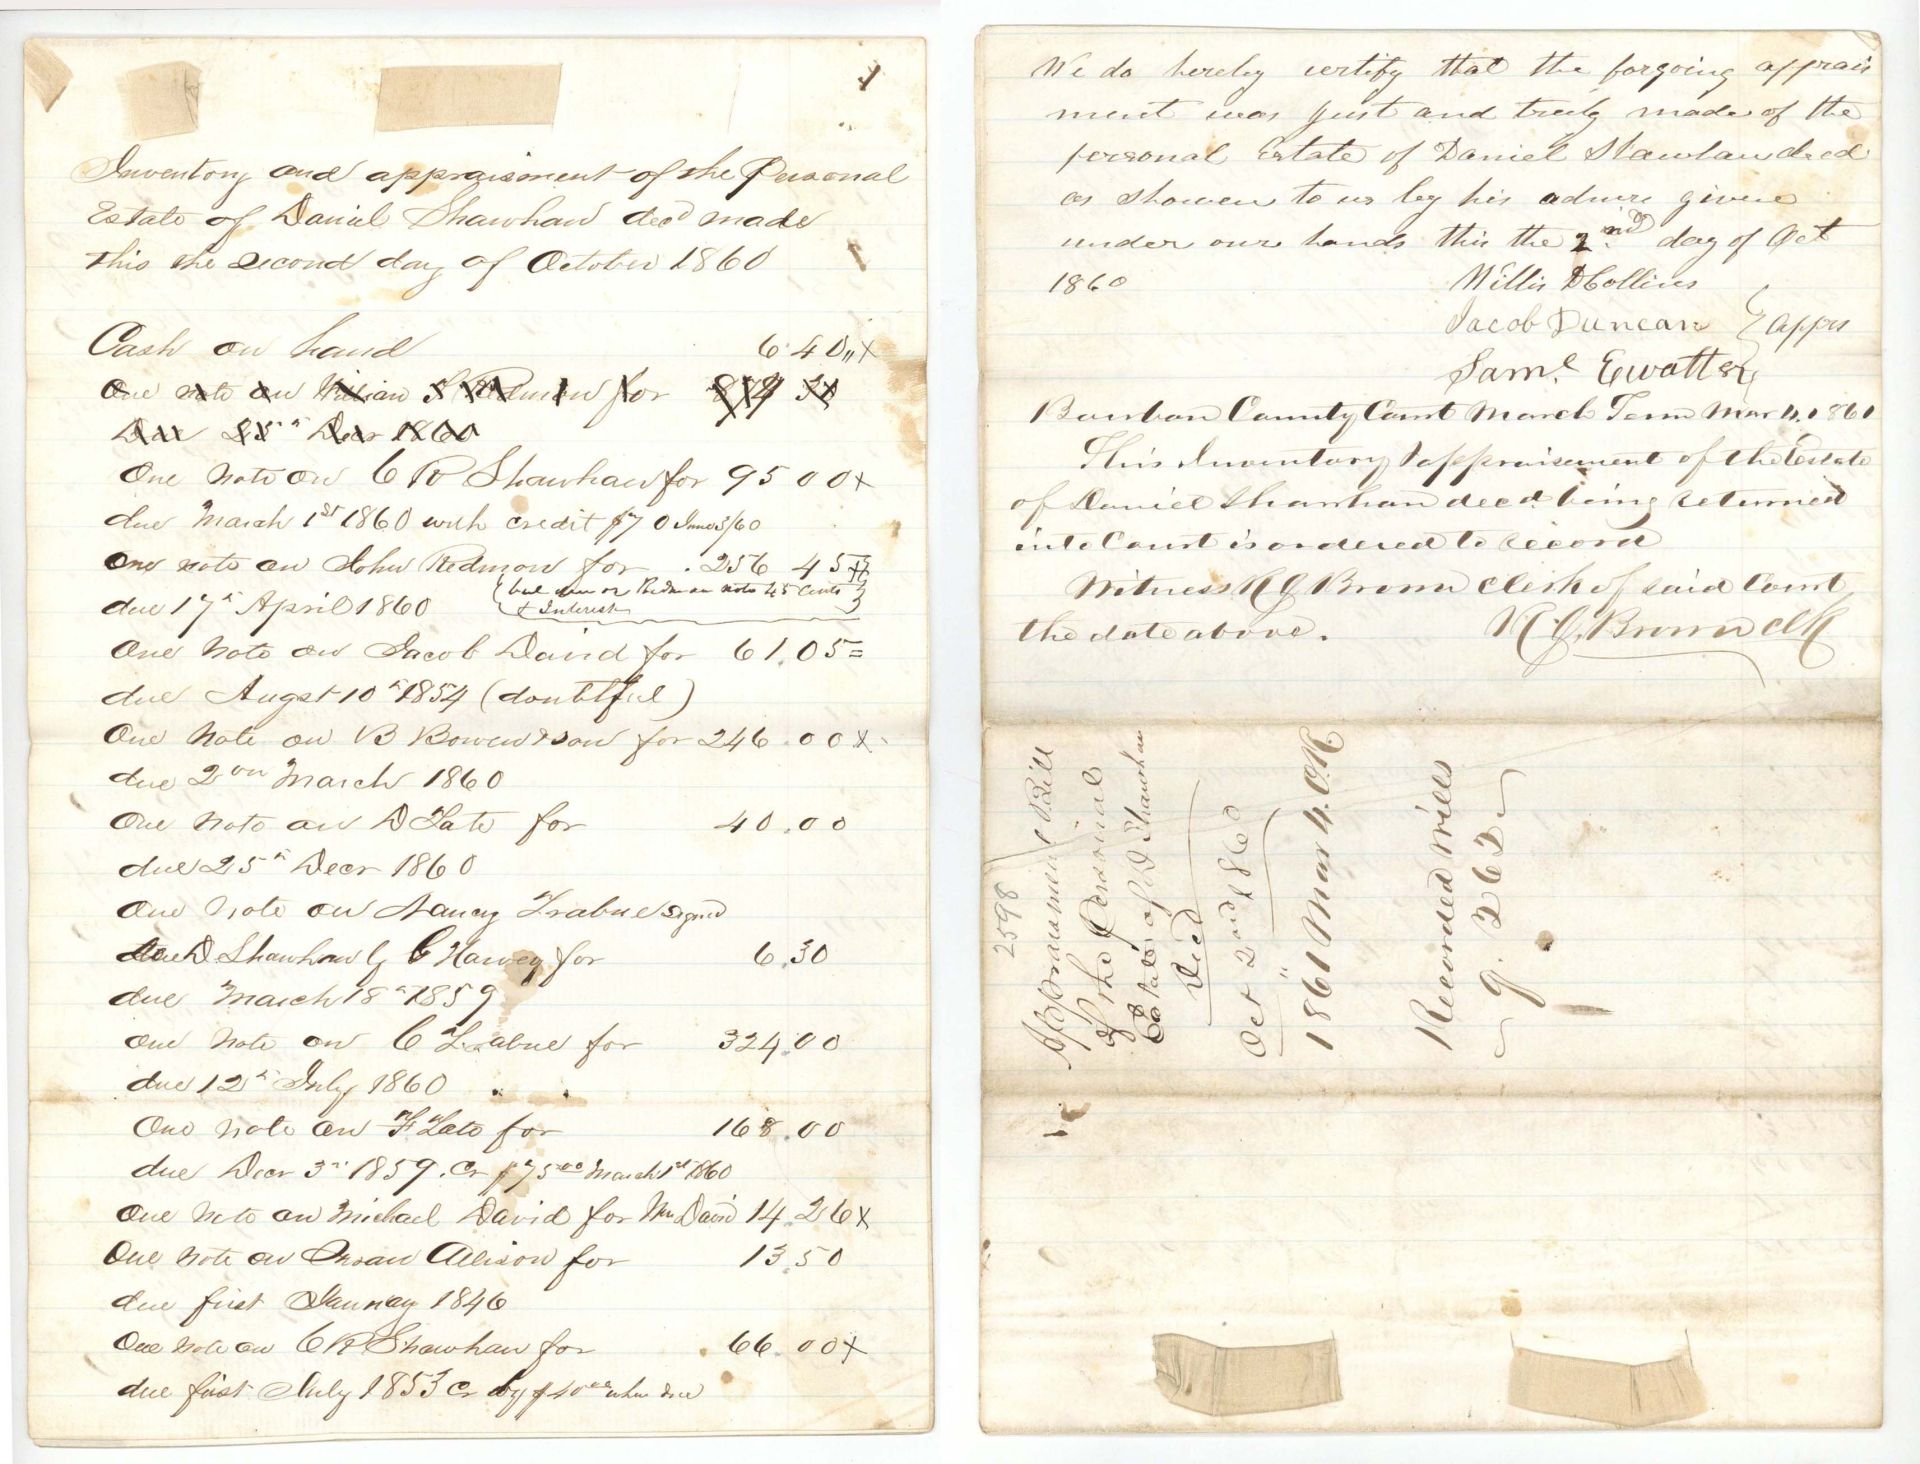 1
Inventory and appraisment of the Personal
Estate of Daniel Shawhan decd made
this the second day of October 1860
Cash on hand 6.40,, x
One note on William Redmon for 34
Due 25th Decr 1860
One note on C R Shawhan for 95 00 x
due March 1st 1860 with credit $70 June 3/60
One note on John Redmon for . 256 45
due 17th April 1860 ( but due on Redmon note 45 cents
& Interest
One Note on Jacob David for 61.05 =
due Augst 10th 1854 (doubtful)
One Note on B Bowen & son for 246.00 x
due 2nd March 1860
One Note on D Tate for 40.00
due 25th Decr 1860
One Note on Nancy Trabue signed
D. Shawhan G C Harvey for 6.30
due March 18th 1859
One Note on C Trabue for 324.00
due 12th July 1860
One note on F Tate for 168.00
due Decr 3rd 1859. Cr $75 00 March 1st 1860
One Note on Michael David for Wm David 14.26 x
One Note on Susan Allison for 13.50
due first January 1846
One note on C R Shawhan for 66.00 x
due first July 1853 Cr by $40 00 when due
We do hereby certify that the forgoing apprais
ment was just and truly made of the
personal Estate of Daniel Shawhan decd
as showen to us by his admrs given
under our hands this the 2nd day of Oct
1860 Willis D Collins
Jacob Duncan } apprs
Saml Ewalt Sr
Bourbon County Court March Term Mar 4, 1861
This Inventory & appraisement of the Estate
of Daniel Shawhan decd. being returned
into Court is ordered to record
Witness R J Brown Clerk of said Court
the date above. R J. Brown clk
2598
Appraisment Bill
of the Personal
Estate of D Shawhan
Decd
Oct 2nd 1860
1861 Mar 4. O.R.
Recorded Wills
262